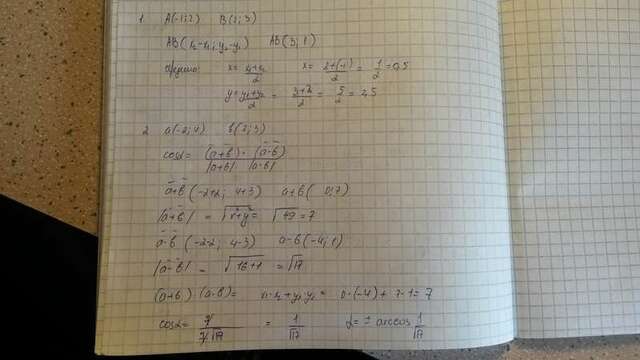 1. A(-1; 2) B(2; 3)
AB(x₂-x₁; y₂-y₁) AB(3; 1)
x = x₁+x₂/2 x = 2+(-1)/2 = 1/2 = 0,5
y = y₁+y₂/2 = 3+2/2 = 5/2 = 2,5
2. a(-2; 4) b(2; 3)
cosα = (a+b)·(a-b)/|a+b|·|a-b|
a+b(-2+2; 4+3) a+b(0; 7)
|a+b| = √x²+y² = √49 = 7
a-b(-2-2; 4-3) a-b(-4; 1)
|a-b| = √16+1 = √17
(a+b)(a-b) = x₁·x₂+y₁·y₂ = 0·(-4)+7·1=7
cosα = 7/7√17 = 1/√17 α = ± arccos 1/√17